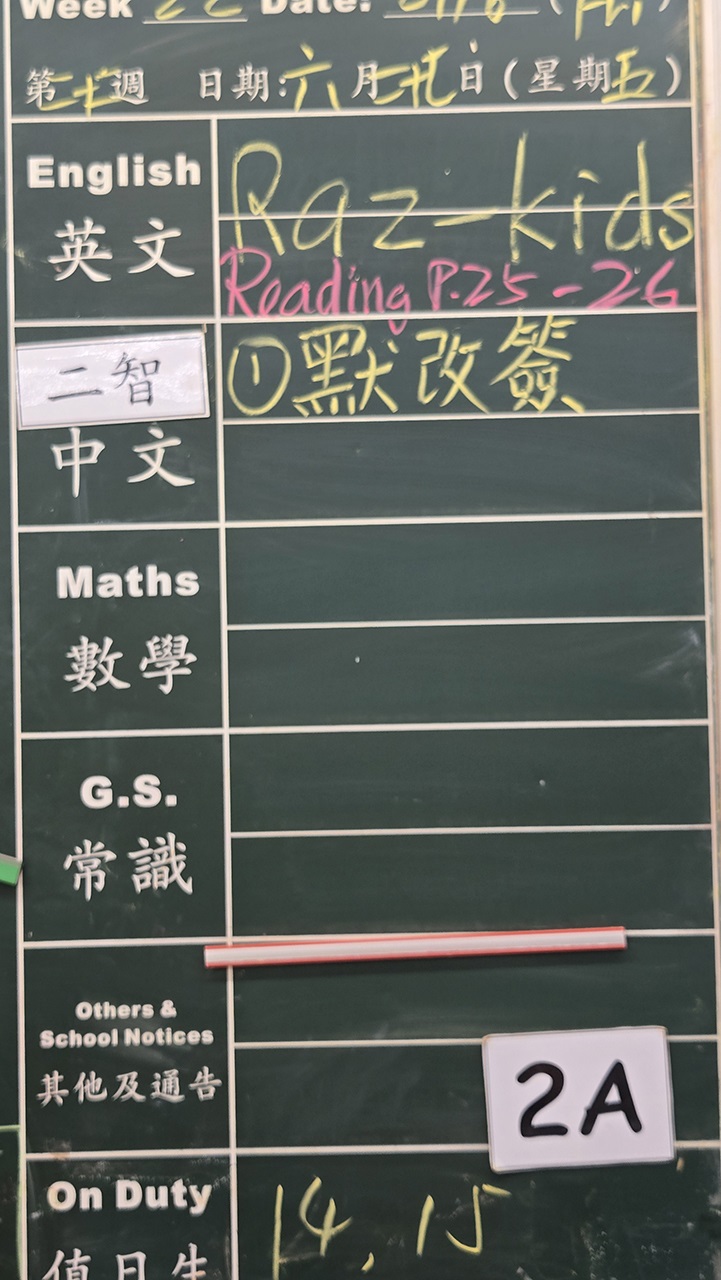 Week 22 Date: (Fri)
第二十週 日期:六月廿九日(星期五)
English
英文
Raz-kids
Reading P.25-26
二智
中文
①默改簽
Maths
數學
G.S.
常識
Others &
School Notices
其他及通告
2A
On Duty
值日生
14, 15